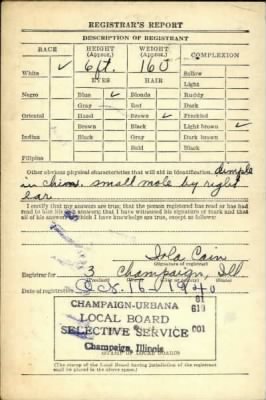 REGISTRAR'S REPORT
DESCRIPTION OF REGISTRANT
RACE HEIGHT (Approx.) WEIGHT (Approx.) COMPLEXION
White ✓ 6 ft. 160 Sallow
EYES HAIR Light
Negro Blue ✓ Blonde Ruddy
Gray Red Dark
Oriental Hazel Brown ✓ Freckled
Brown Black Light brown ✓
Indian Black Gray Dark brown
Bald Black
Filipino
Other obvious physical characteristics that will aid in identification, dimple
in chin. small mole by right
ear
I certify that my answers are true; that the person registered has read or has had
read to him his own answers; that I have witnessed his signature or mark and that
all of his answers of which I have knowledge are true, except as follows:
Iola Cain
(Signature of registrar)
Registrar for 3 Champaign, Ill.
Date of registration Oct. 16 - 1940
CHAMPAIGN-URBANA 61
LOCAL BOARD 019
SELECTIVE SERVICE 001
Champaign, Illinois
STAMP OF LOCAL BOARD
(The stamp of the Local Board having jurisdiction of the registrant
shall be placed in the above space.)